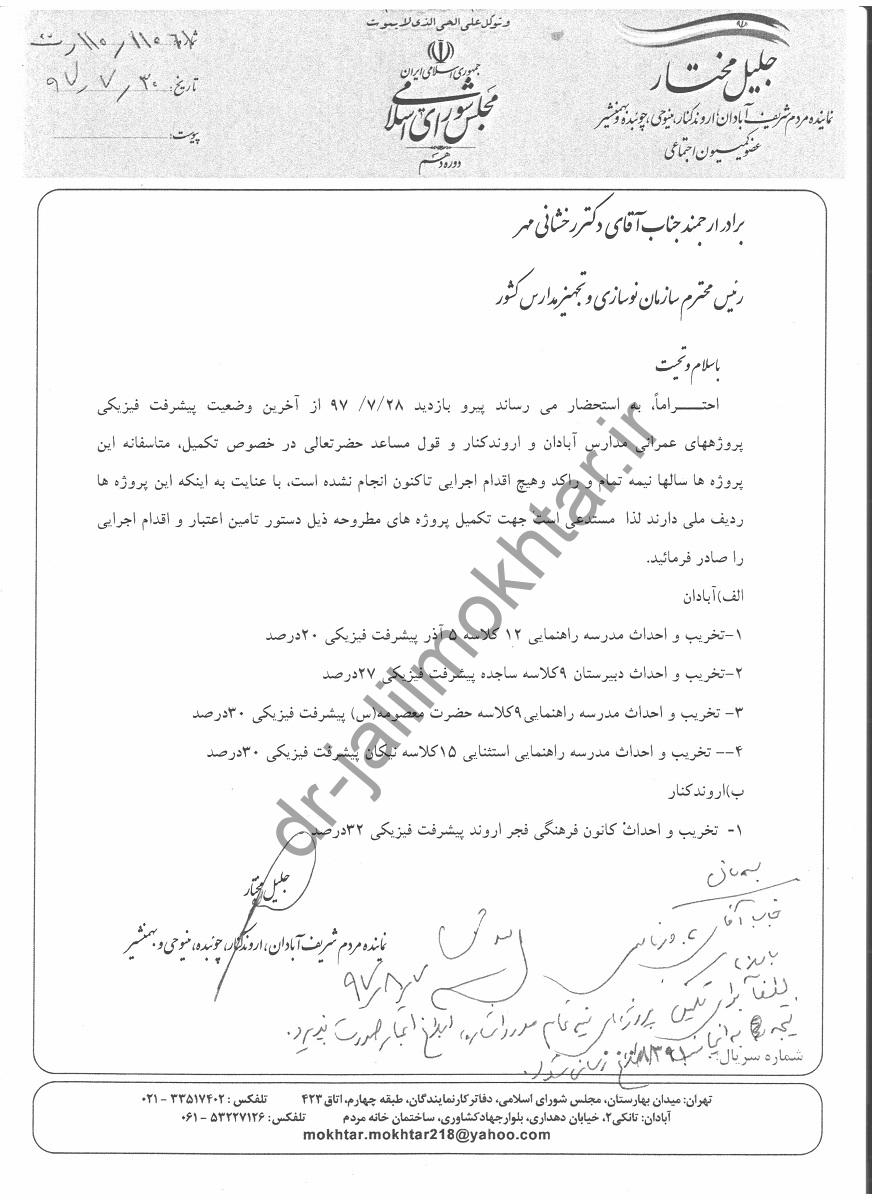 وتوکل علی الحی الذی لا یموت
جمهوری اسلامی ایران
مجلس شورای اسلامی
دوره دهم
جلیل مختار
نماینده مردم شریف آبادان، اروندکنار، منیوحی، چوئبده و بهمنشیر
عضو کمیسیون اجتماعی
شماره: ۱۱۰۵/۱۱۰/
تاریخ: ۹۷/۷/۳۰
پیوست:
برادر ارجمند جناب آقای دکتر رخشانی مهر
رئیس محترم سازمان نوسازی و تجهیز مدارس کشور
باسلام و تحیت
احتـــــراماً، به استحضار می رساند پیرو بازدید ۹۷ /۷/۲۸ از آخرین وضعیت پیشرفت فیزیکی
پروژههای عمرانی مدارس آبادان و اروندکنار و قول مساعد حضرتعالی در خصوص تکمیل، متاسفانه این
پروژه ها سالها نیمه تمام و راکد وهیچ اقدام اجرایی تاکنون انجام نشده است، با عنایت به اینکه این پروژه ها
ردیف ملی دارند لذا مستدعی است جهت تکمیل پروژه های مطروحه ذیل دستور تامین اعتبار و اقدام اجرایی
را صادر فرمائید.
الف)آبادان
۱-تخریب و احداث مدرسه راهنمایی ۱۲ کلاسه ۵ آذر پیشرفت فیزیکی ۲۰درصد
۲-تخریب و احداث دبیرستان ۹کلاسه ساجده پیشرفت فیزیکی ۲۷درصد
۳- تخریب و احداث مدرسه راهنمایی۹کلاسه حضرت معصومه(س) پیشرفت فیزیکی ۳۰درصد
۴-- تخریب و احداث مدرسه راهنمایی استثنایی ۱۵کلاسه نیکان پیشرفت فیزیکی ۳۰درصد
ب)اروندکنار
۱- تخریب و احداث کانون فرهنگی فجر اروند پیشرفت فیزیکی ۳۲درصد
dr-jalilmokhtar.ir
جلیل مختار
نماینده مردم شریف آبادان، اروندکنار، چوئبده، منیوحی و بهمنشیر
جناب آقای
۹۷/۸/۷
لطفاً برای تکمیل پروژه های نیمه تمام مورد اشاره، ابلاغ اعتبار صورت پذیرد.
نتیجه به اینجانب
شماره سریال:
تهران: میدان بهارستان، مجلس شورای اسلامی، دفاتر کار نمایندگان، طبقه چهارم، اتاق ۴۲۳ تلفکس : ۳۳۵۱۷۴۰۲ - ۰۲۱
آبادان: تانکی۲، خیابان دهداری، بلوار جهاد کشاورزی، ساختمان خانه مردم تلفکس: ۵۳۲۲۷۱۲۶ - ۰۶۱
mokhtar.mokhtar218@yahoo.com